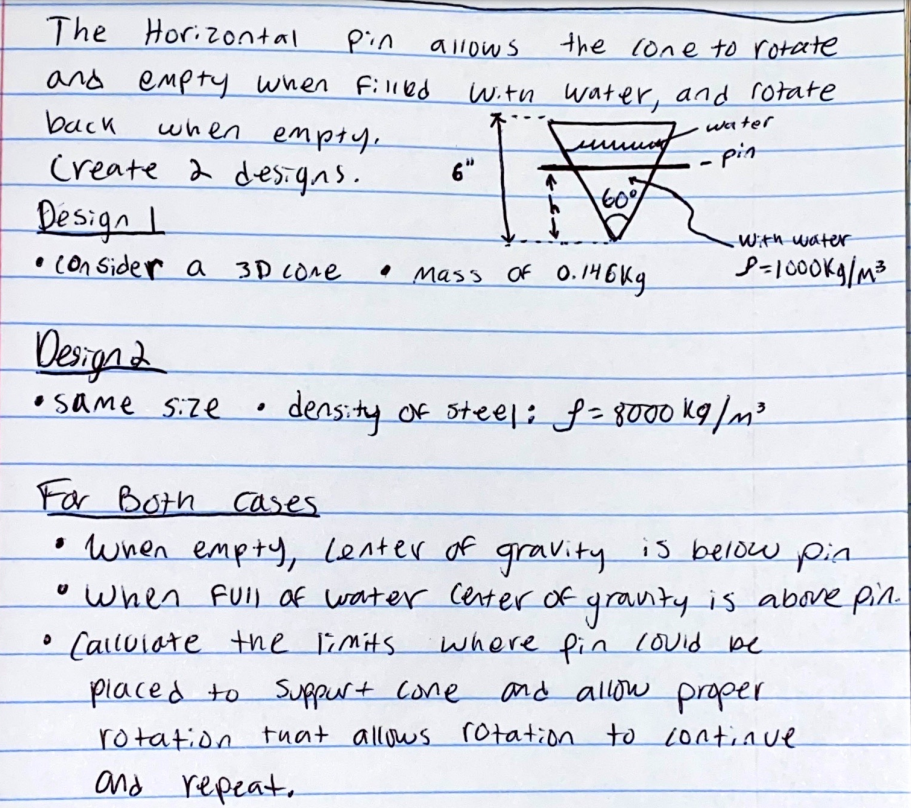 The Horizontal pin allows the cone to rotate
and empty when filled with water, and rotate
back when empty.
water
pin
Create 2 designs.
6"
h
60°
Design 1
with water
ρ=1000kg/m³
• consider a 3D cone • mass of 0.146kg
Design 2
• same size • density of steel: ρ= 8000 kg/m³
For Both cases
• When empty, center of gravity is below pin
• When full of water center of gravity is above pin.
• Calculate the limits where pin could be
placed to support cone and allow proper
rotation that allows rotation to continue
and repeat.